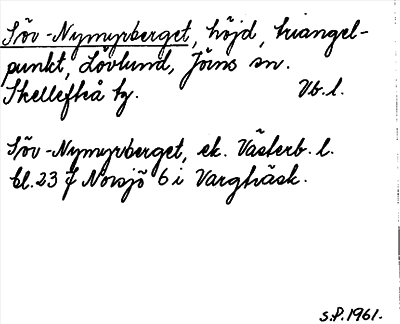 Söv-Nymyrberget, höjd, triangel-
punkt, Lövlund, Jörns sn.
Skellefteå tg. Vb. l.
Söv-Nymyrberget, ek. Västerb. l.
bl. 23 f Norsjö 6 i Vargträsk.
S.P. 1961.